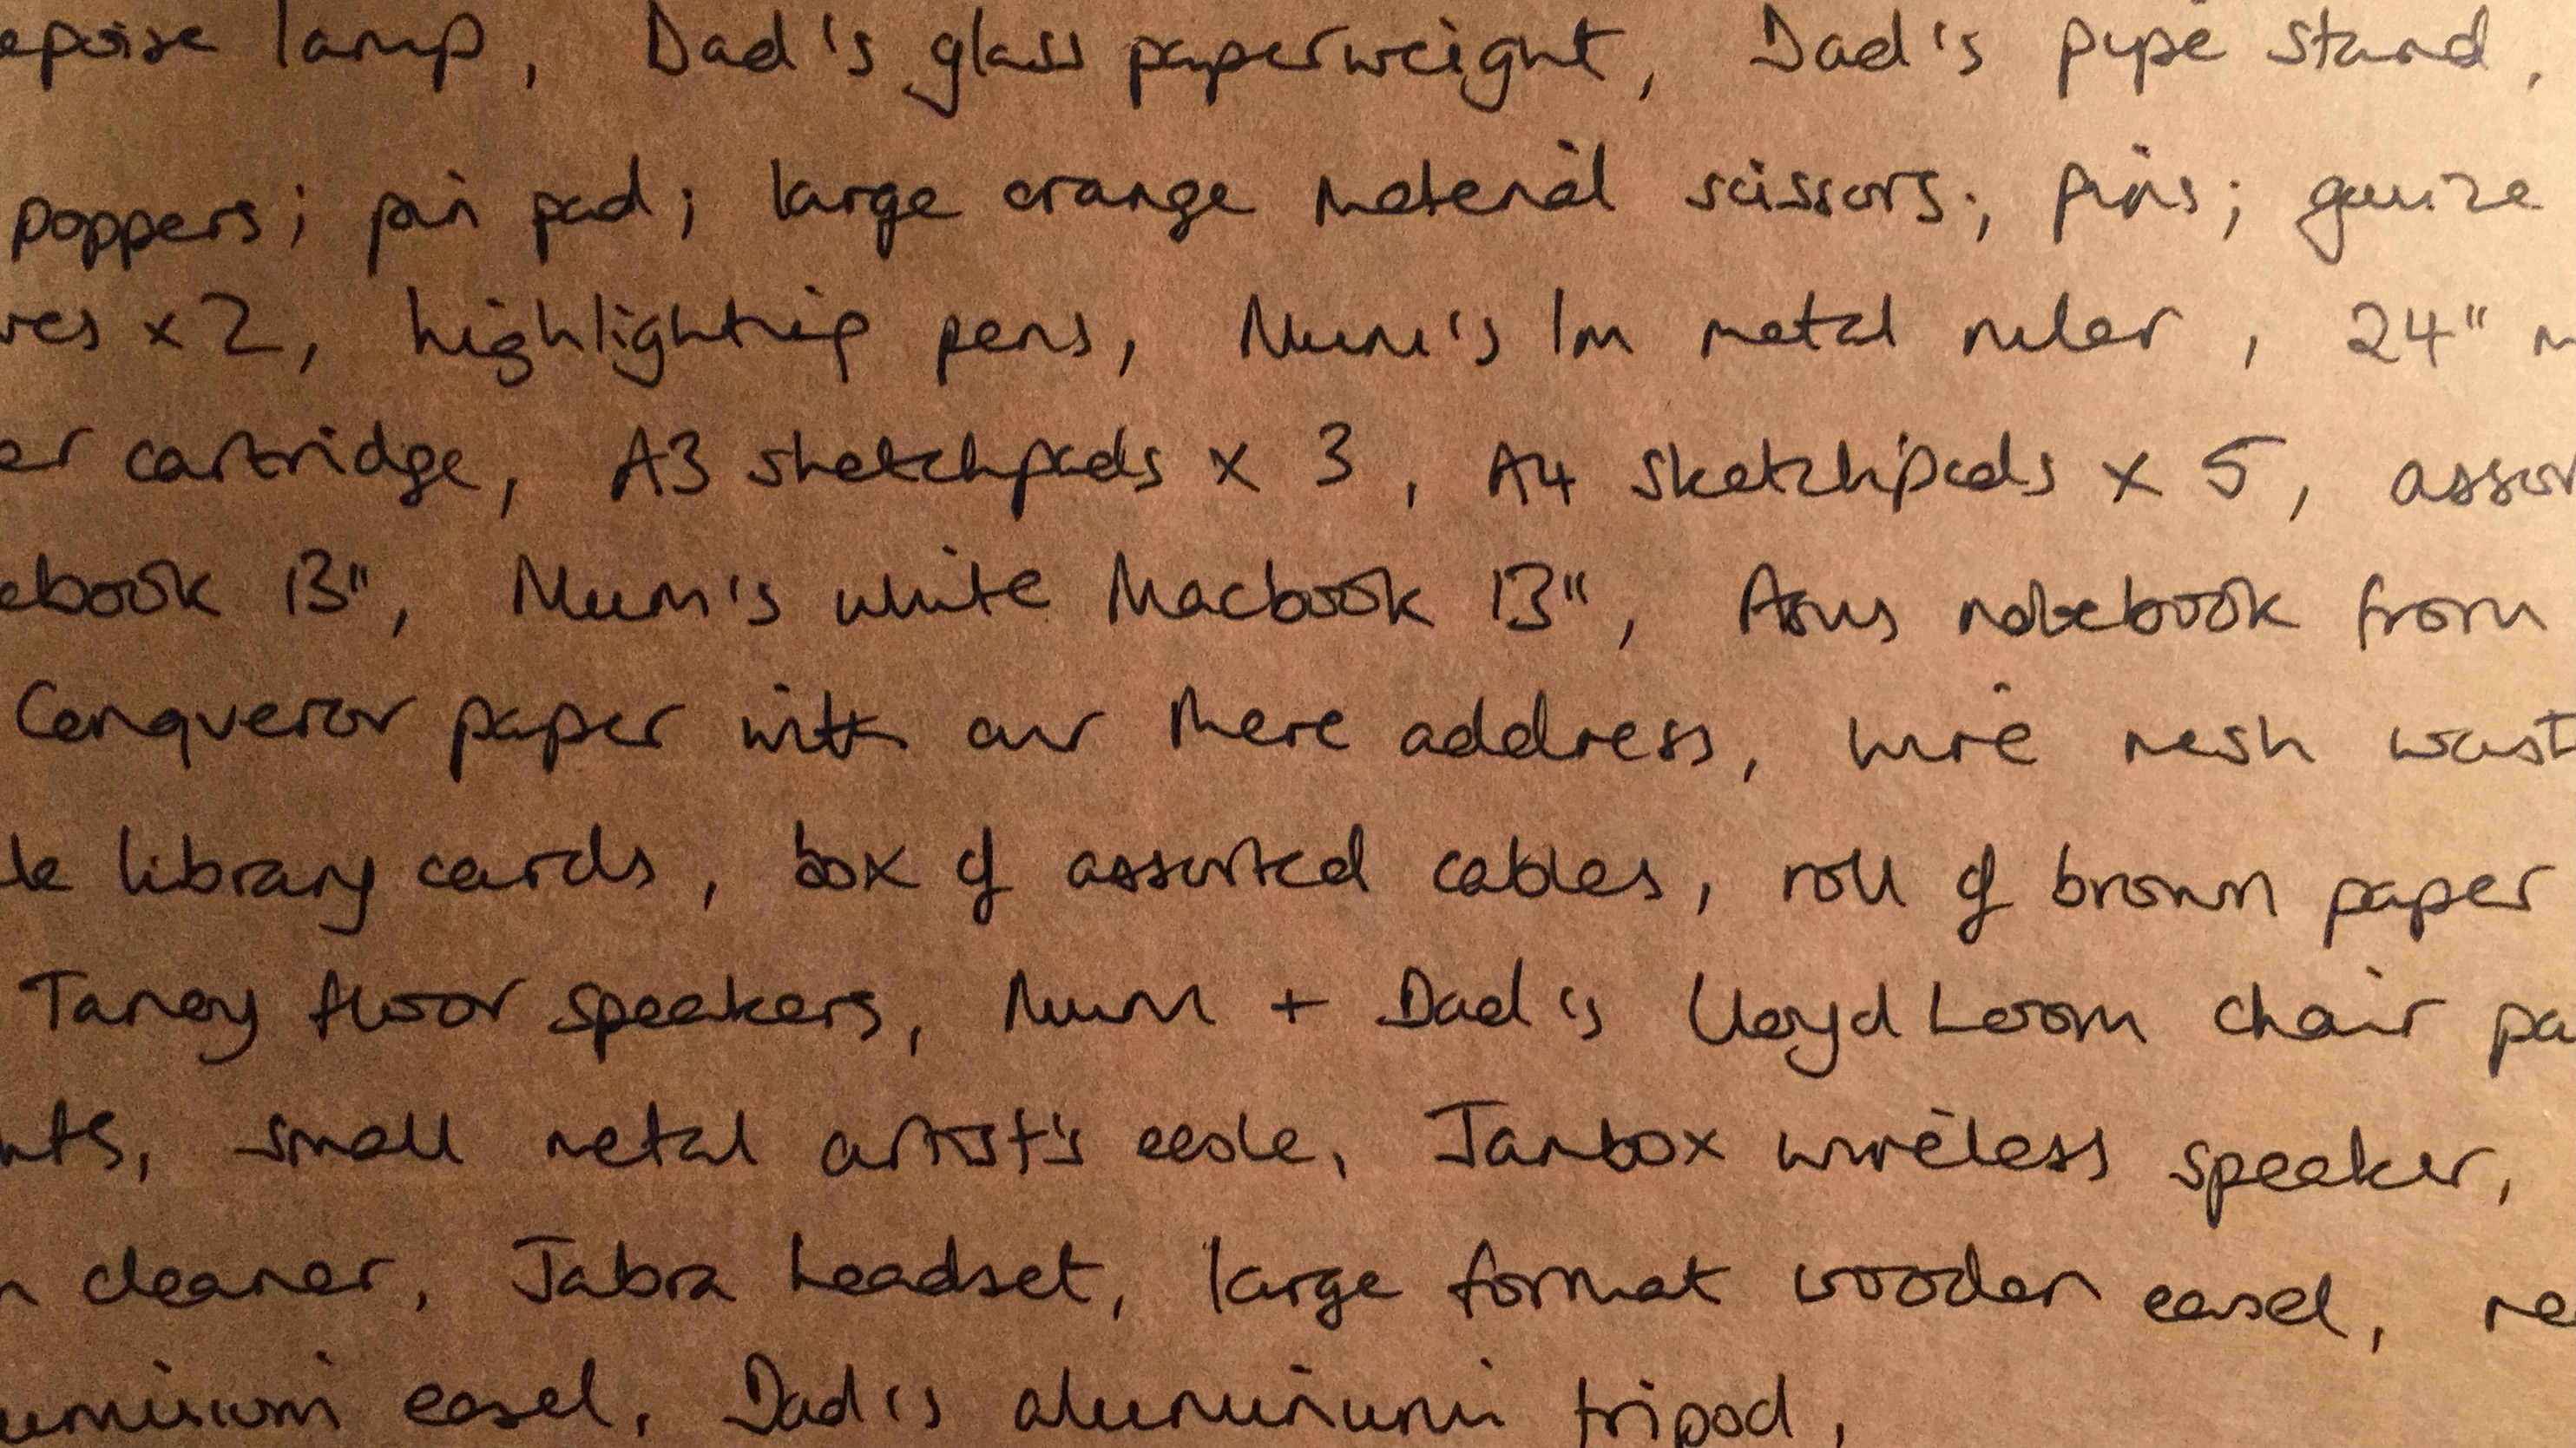 epoise lamp, Dad's glass paperweight, Dad's pipe stand,
poppers; pin pad; large orange material scissors; pins; gauze
ves x 2, highlighting pens, Mum's 1m metal ruler, 24" m
er cartridge, A3 sketchpads x 3, A4 sketchpads x 5, assor
ebook 13", Mum's white Macbook 13", Asus notebook from
Conqueror paper with our Mere address, wire mesh wast
le library cards, box of assorted cables, roll of brown paper
Tanoy floor speakers, Mum + Dad's Lloyd Loom chair pa
nts, small metal artist's easle, Jambox wireless speaker,
n cleaner, Jabra headset, large format wooden easel, me
uminium easel, Dad's aluminium tripod,